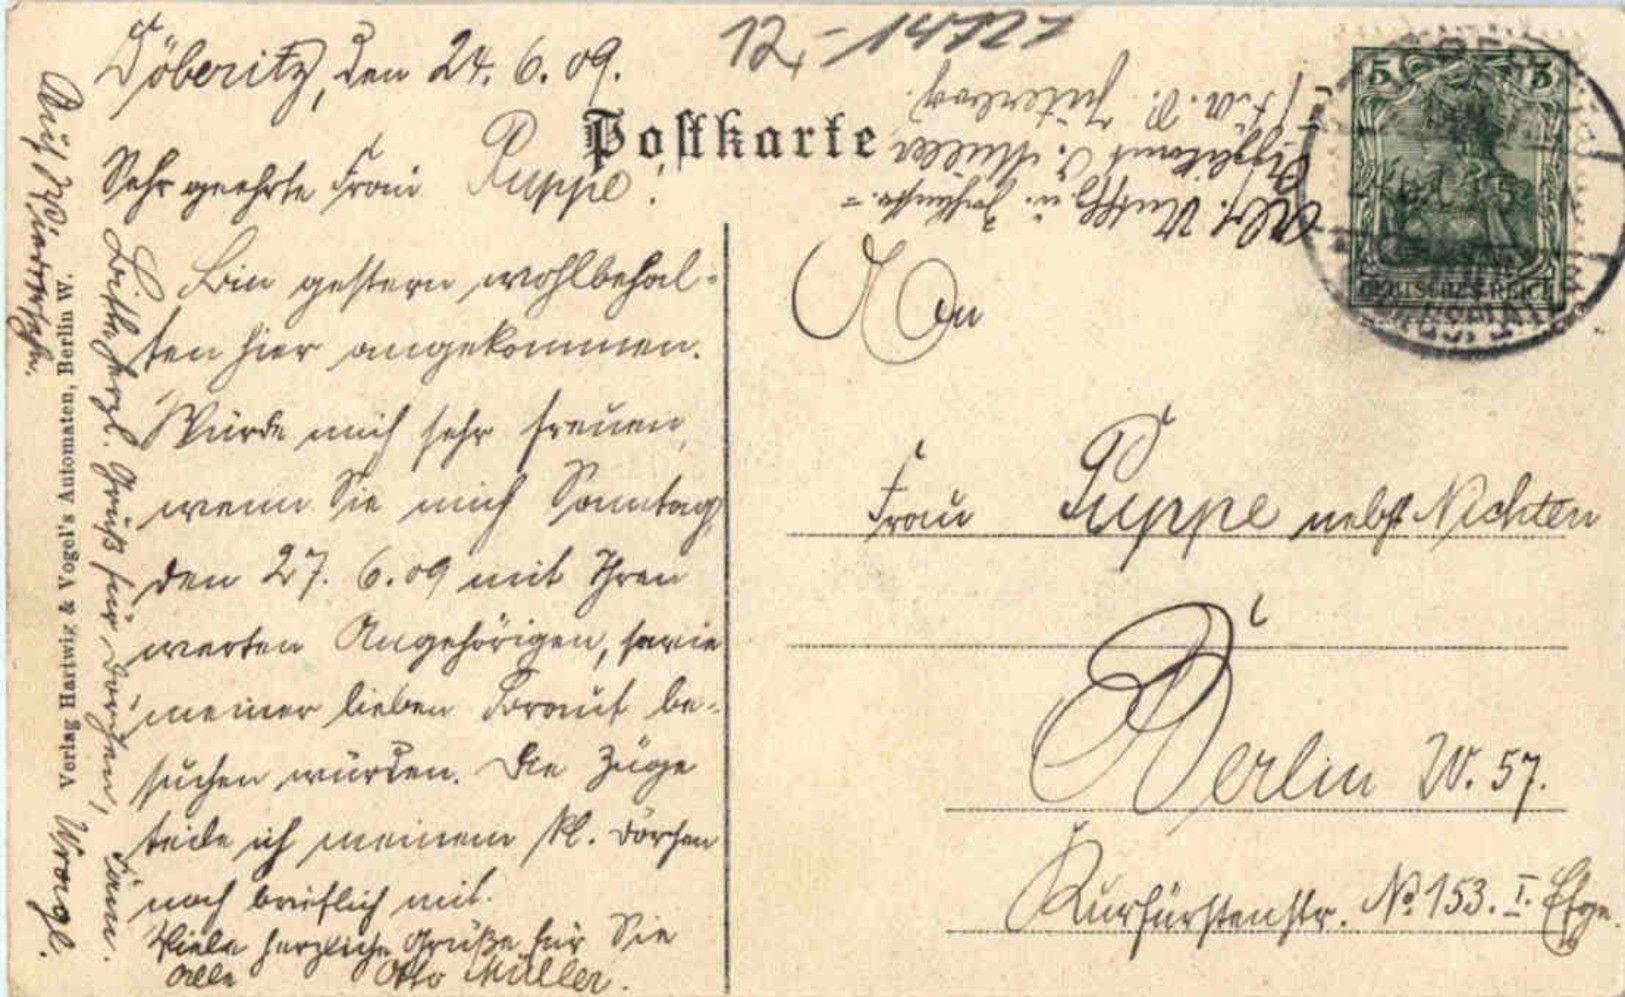 12,-14727
Döberitz, den 24. 6. 09.
Postkarte
Sehr geehrte Frau Puppe!
Bin gestern wohlbehal-
ten hier angekommen.
Würde mich sehr freuen,
wenn Sie mich Sonntag,
den 27. 6. 09 mit Ihren
werten Angehörigen, sowie
meiner lieben Braut be-
suchen würden. Die Züge
teile ich meinem kl. Dörchen
noch brieflich mit.
Viele herzliche Grüße für Sie
alle Otto Müller.
Bitte herzl. Gruß für Dörchen,
Auf Wiedersehn.
Verlag Hartwig & Vogel's Automaten, Berlin W.
Müller
Jüterbog.
5 5
DEUTSCHES REICH
An
Frau Puppe nebst Nichten
Berlin W. 57.
Kurfürstenstr. No 153. I. Etge.